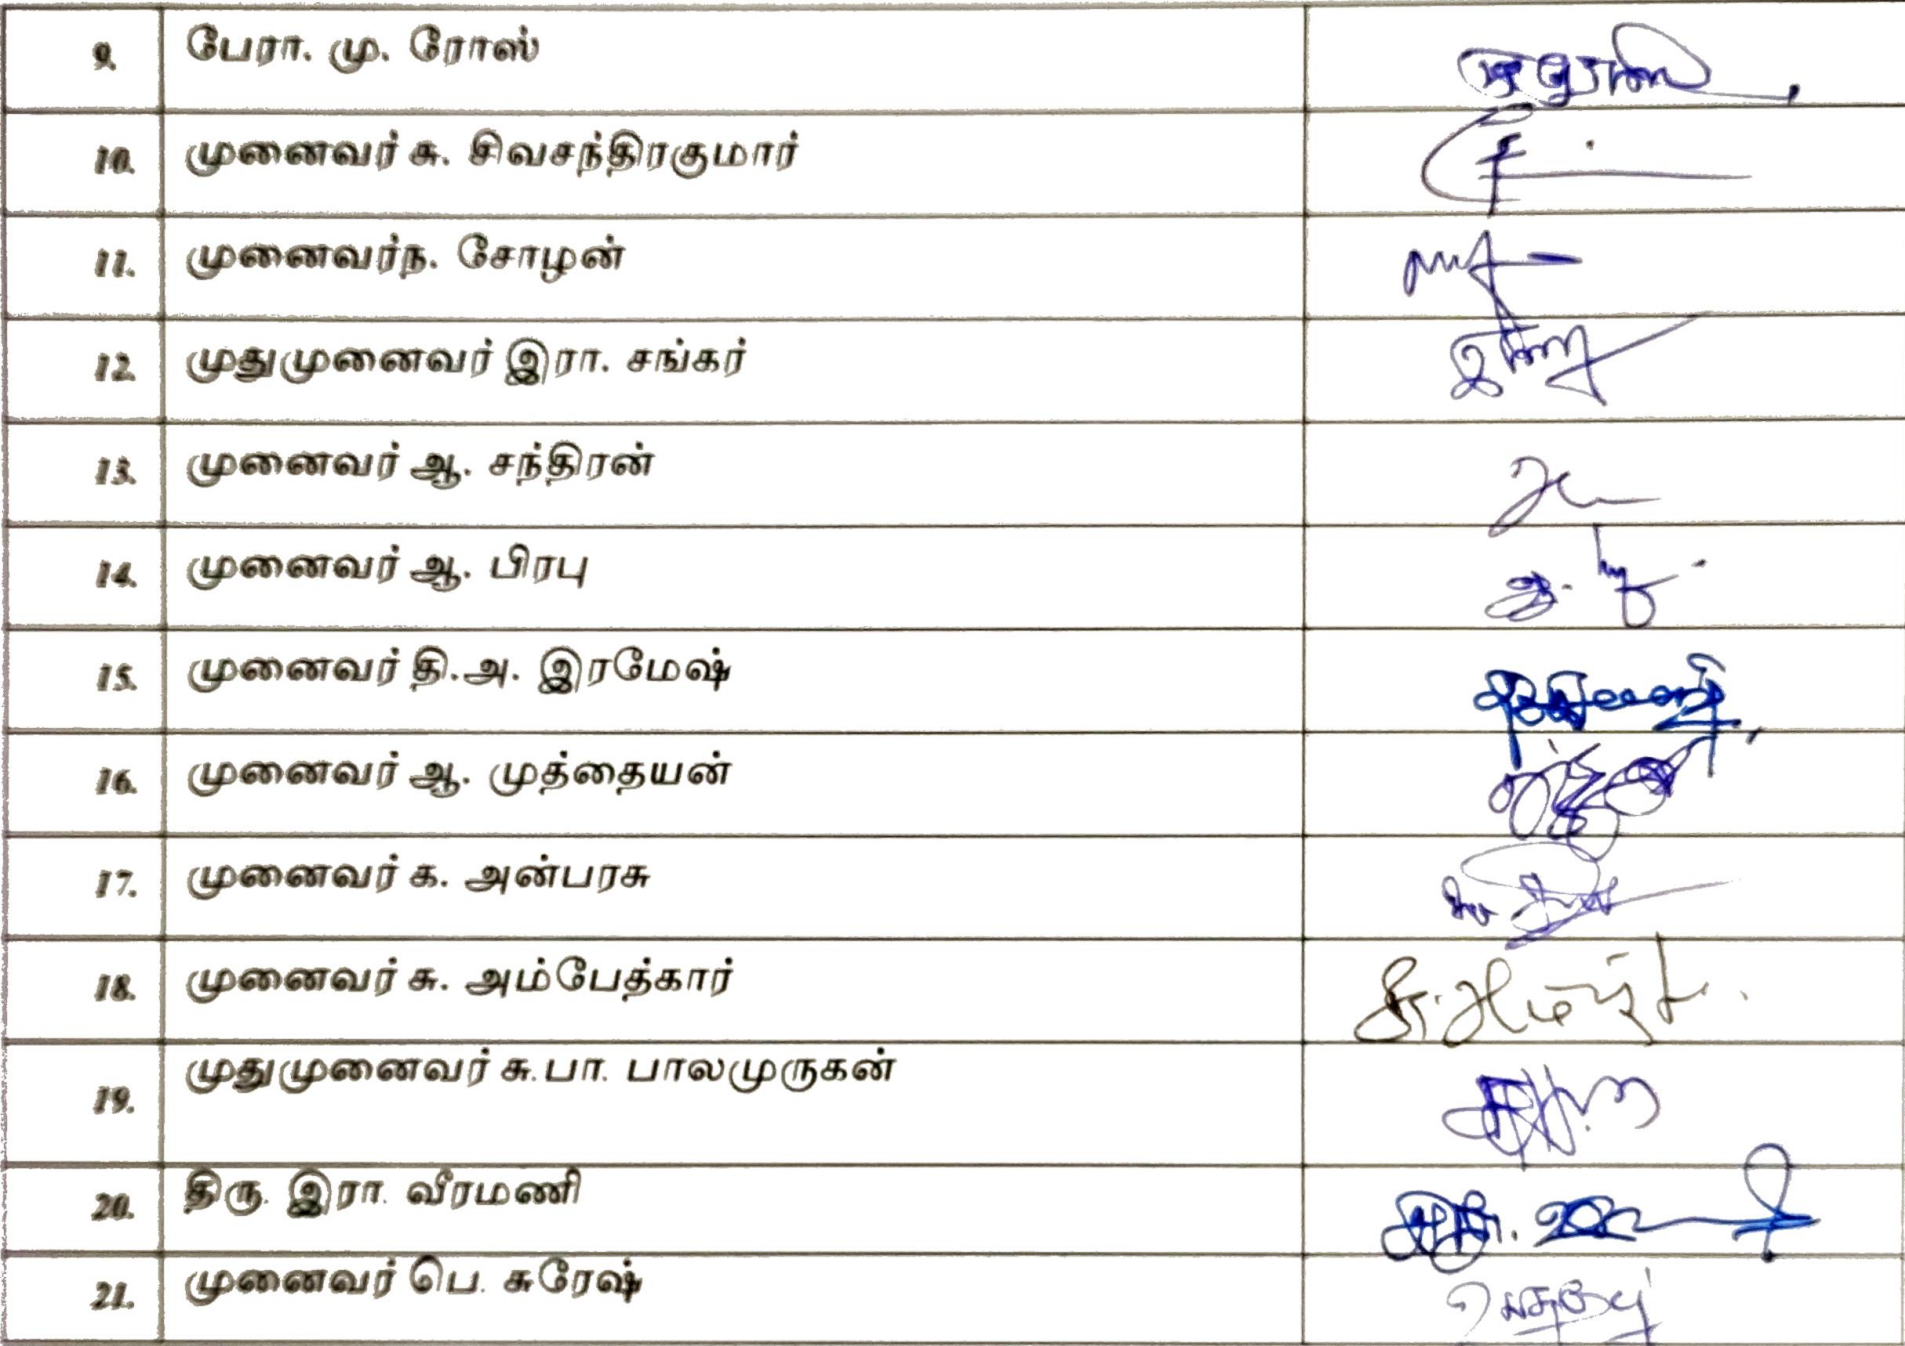 9. பேரா. மு. ரோஸ்
10. முனைவர் சு. சிவசந்திரகுமார்
11. முனைவர்ந. சோழன்
12. முதுமுனைவர் இரா. சங்கர்
13. முனைவர் ஆ. சந்திரன்
14. முனைவர் ஆ. பிரபு
15. முனைவர் தி.அ. இரமேஷ்
16. முனைவர் ஆ. முத்தையன்
17. முனைவர் க. அன்பரசு
18. முனைவர் சு. அம்பேத்கார்
19. முதுமுனைவர் சு.பா. பாலமுருகன்
20. திரு. இரா. வீரமணி
21. முனைவர் பெ. சுரேஷ்